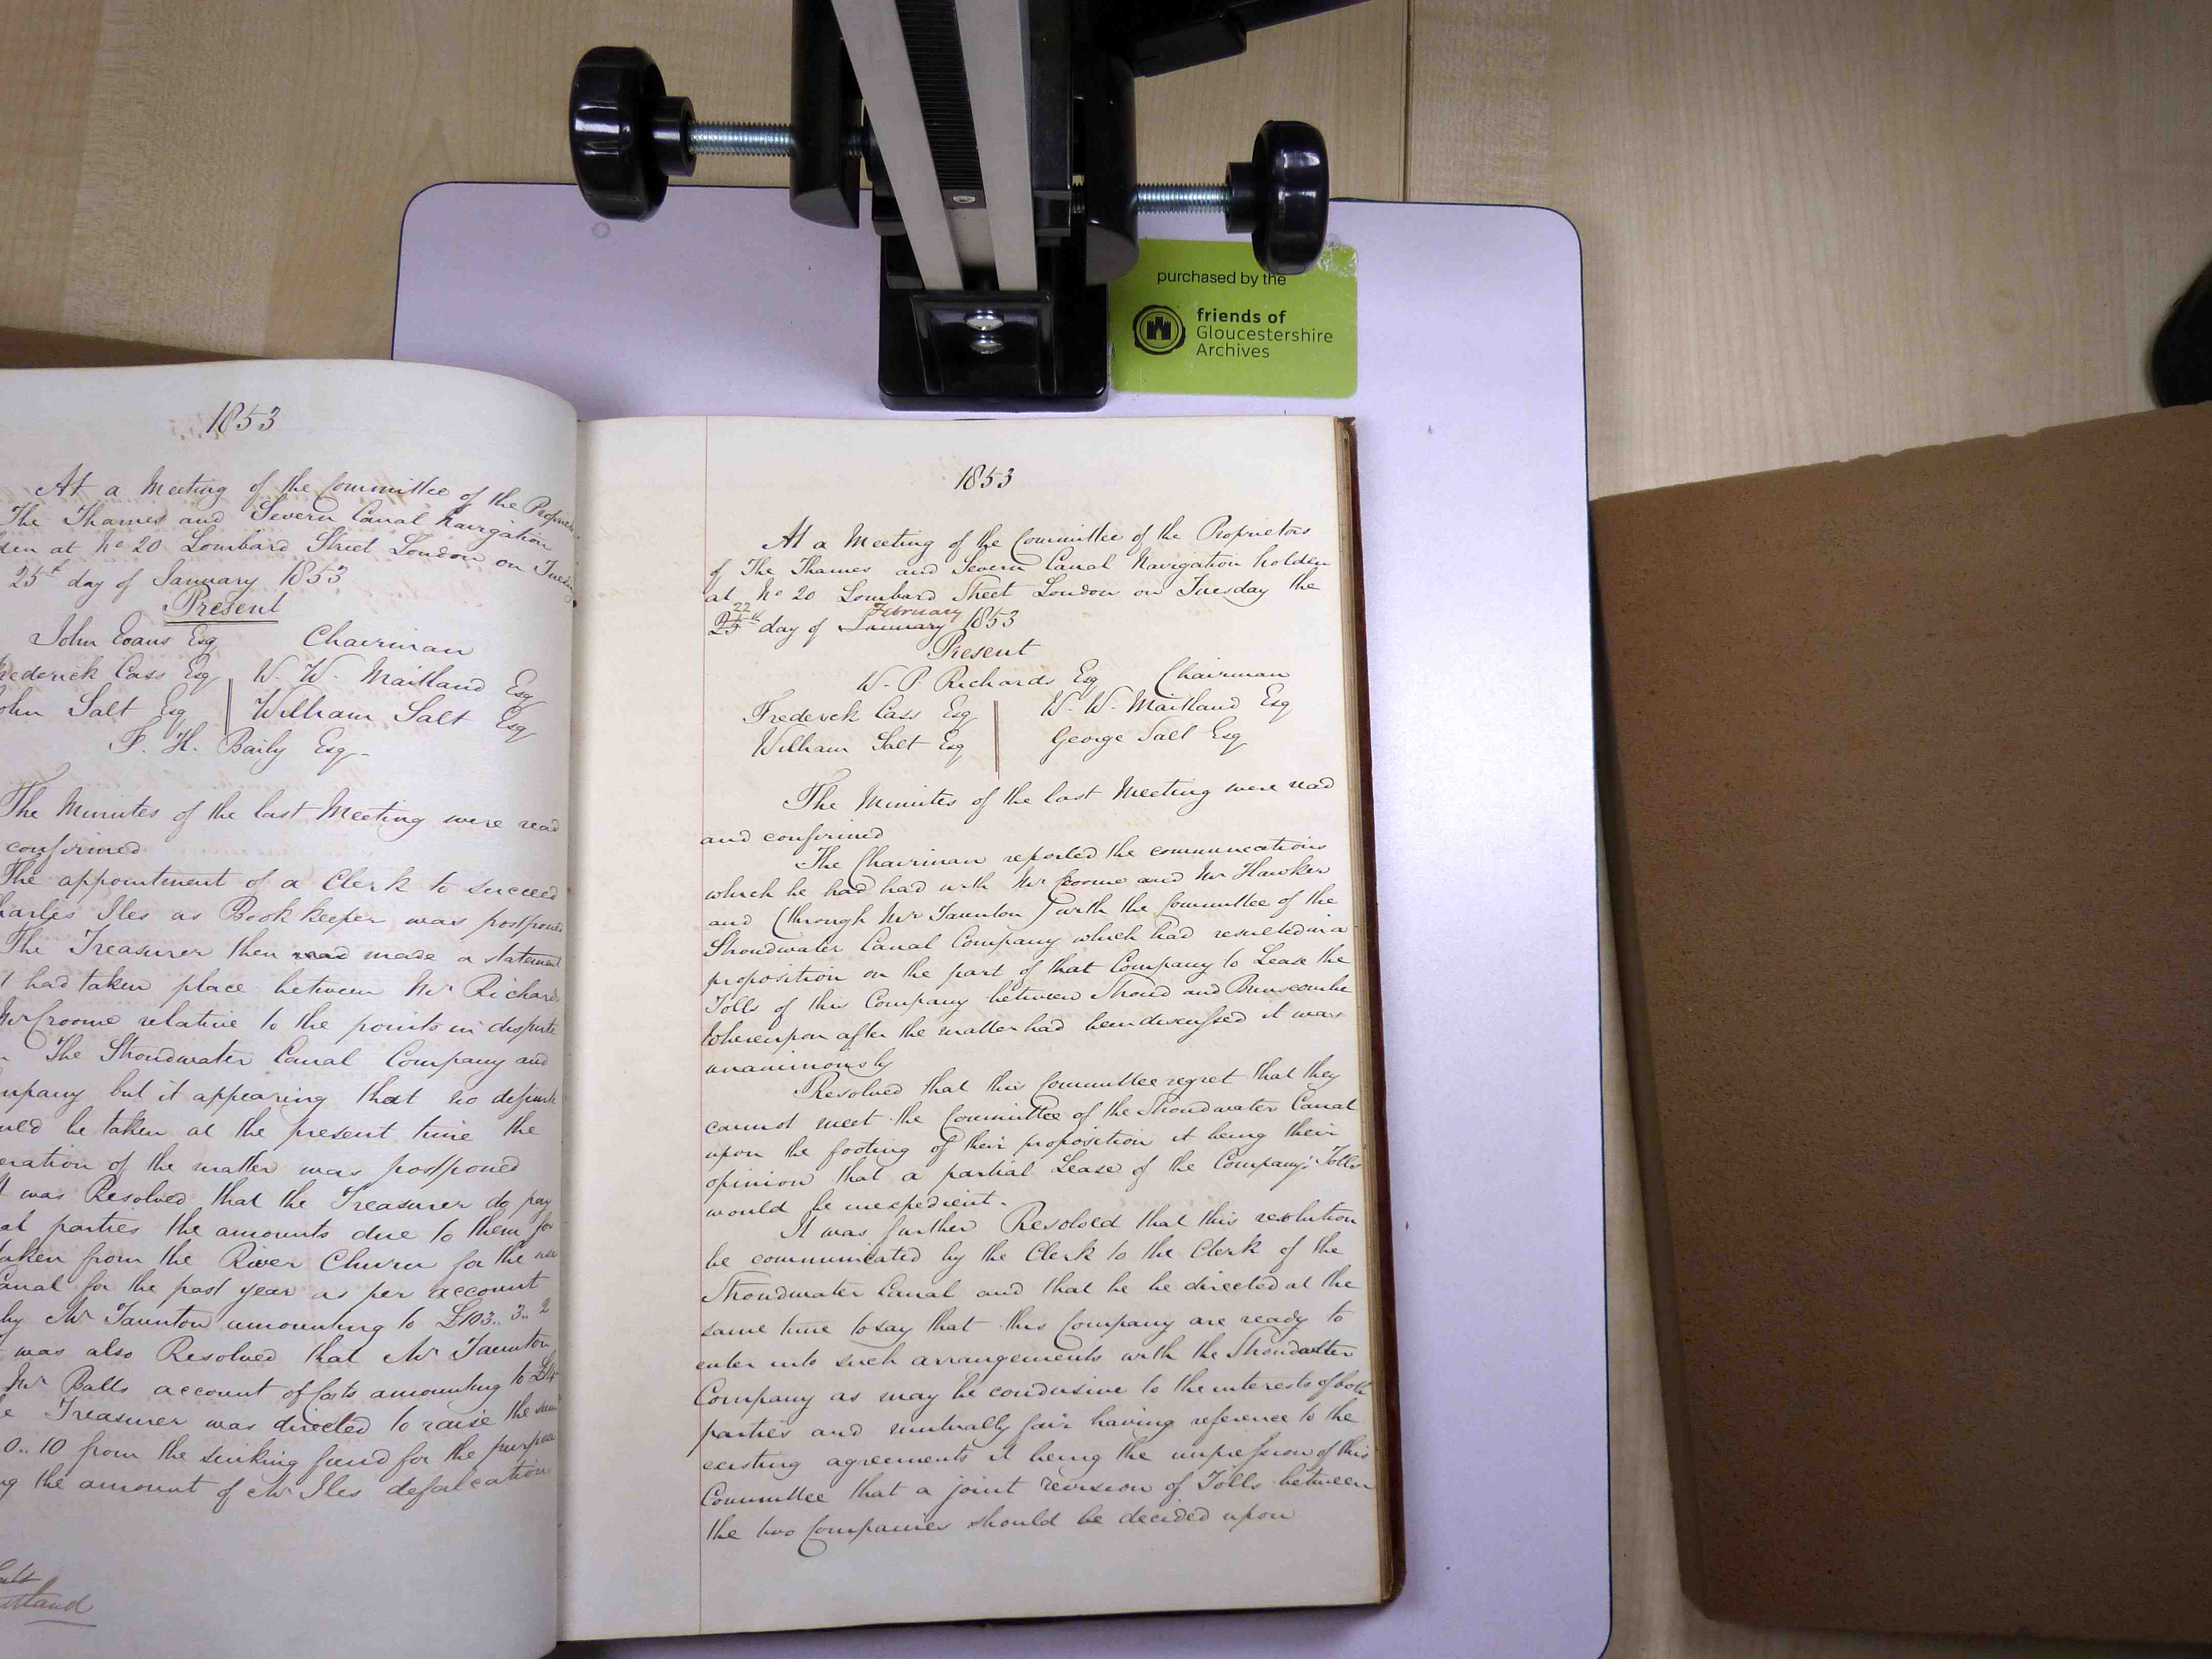 purchased by the
friends of
Gloucestershire
Archives
1853
At a Meeting of the Committee of the
The Thames and Severn Canal Navigation
at No 20 Lombard Street London on
25th day of January 1853
Present
John Evans Esq Chairman
Cass Esq W. W. Maitland Esq
Salt Esq William Salt Esq
F. H. Baily Esq
The Minutes of the last Meeting were read
confirmed
The appointment of a Clerk to succeed
Iles as Book keeper was postponed
The Treasurer then read made a statement
had taken place between Mr
Mr Croome relative to the points in dispute
The Stroudwater Canal Company and
but it appearing that no definite
be taken at the present time the
of the matter was postponed
It was Resolved that the Treasurer do pay
parties the amounts due to them for
taken from the River Churn for the use
Canal for the past year as per account
by Mr Taunton amounting to £103.. 3.. 2
was also Resolved that Mr Taunton
Mr Balls account of Costs amounting to
Treasurer was directed to raise the sum
0.. 10 from the sinking fund for the purpose
the amount of Mr Iles defalcation
1853
At a Meeting of the Committee of the Proprietors
of The Thames and Severn Canal Navigation holden
at No 20 Lombard Street London on Tuesday the
22 February
25th day of January 1853
Present
W. P. Richards Esq Chairman
Frederick Cass Esq W. W. Maitland Esq
William Salt Esq George Salt Esq
The Minutes of the last Meeting were read
and confirmed
The Chairman reported the communications
which he had had with Mr Croome and Mr Hawker
and (through Mr Taunton) with the Committee of the
Stroudwater Canal Company which had resulted in a
proposition on the part of that Company to Lease the
Tolls of this Company between Stroud and Brimscombe
Whereupon after the matter had been discussed it was
unanimously
Resolved that this Committee regret that they
cannot meet the Committee of the Stroudwater Canal
upon the footing of their proposition it being their
opinion that a partial Lease of the Company's Tolls
would be inexpedient.
It was further Resolved that this resolution
be communicated by the Clerk to the Clerk of the
Stroudwater Canal and that he be directed at the
same time to say that this Company are ready to
enter into such arrangements with the Stroudwater
Company as may be condusive to the interests of both
parties and mutually fair having reference to the
existing agreements it being the impression of this
Committee that a joint revision of Tolls between
the two Companies should be decided upon